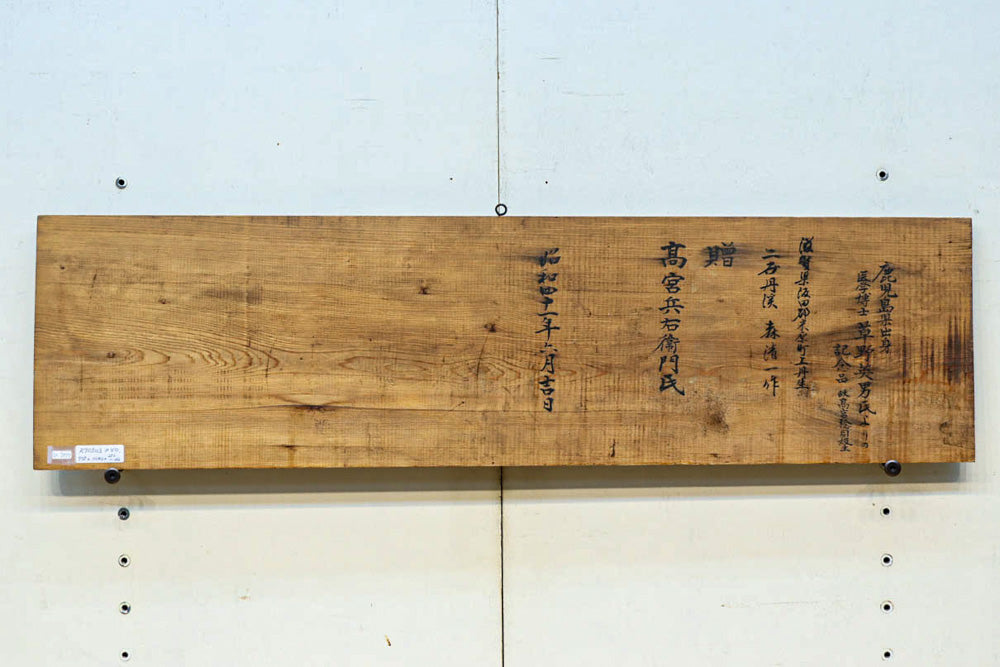 鹿児島県出身
医学博士 草野英男氏よりの
記念品 故高宮
滋賀県坂田郡米原町上丹生
二石丹渓 森清一作
贈
高宮兵右衛門氏
昭和四十一年六月吉日